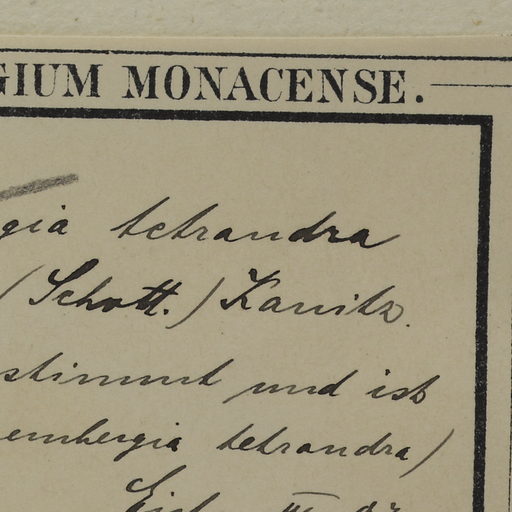 GIUM MONACENSE.
gia tetrandra
(Schott.) Kanitz.
stimmt und ist
embergia tetrandra)
III